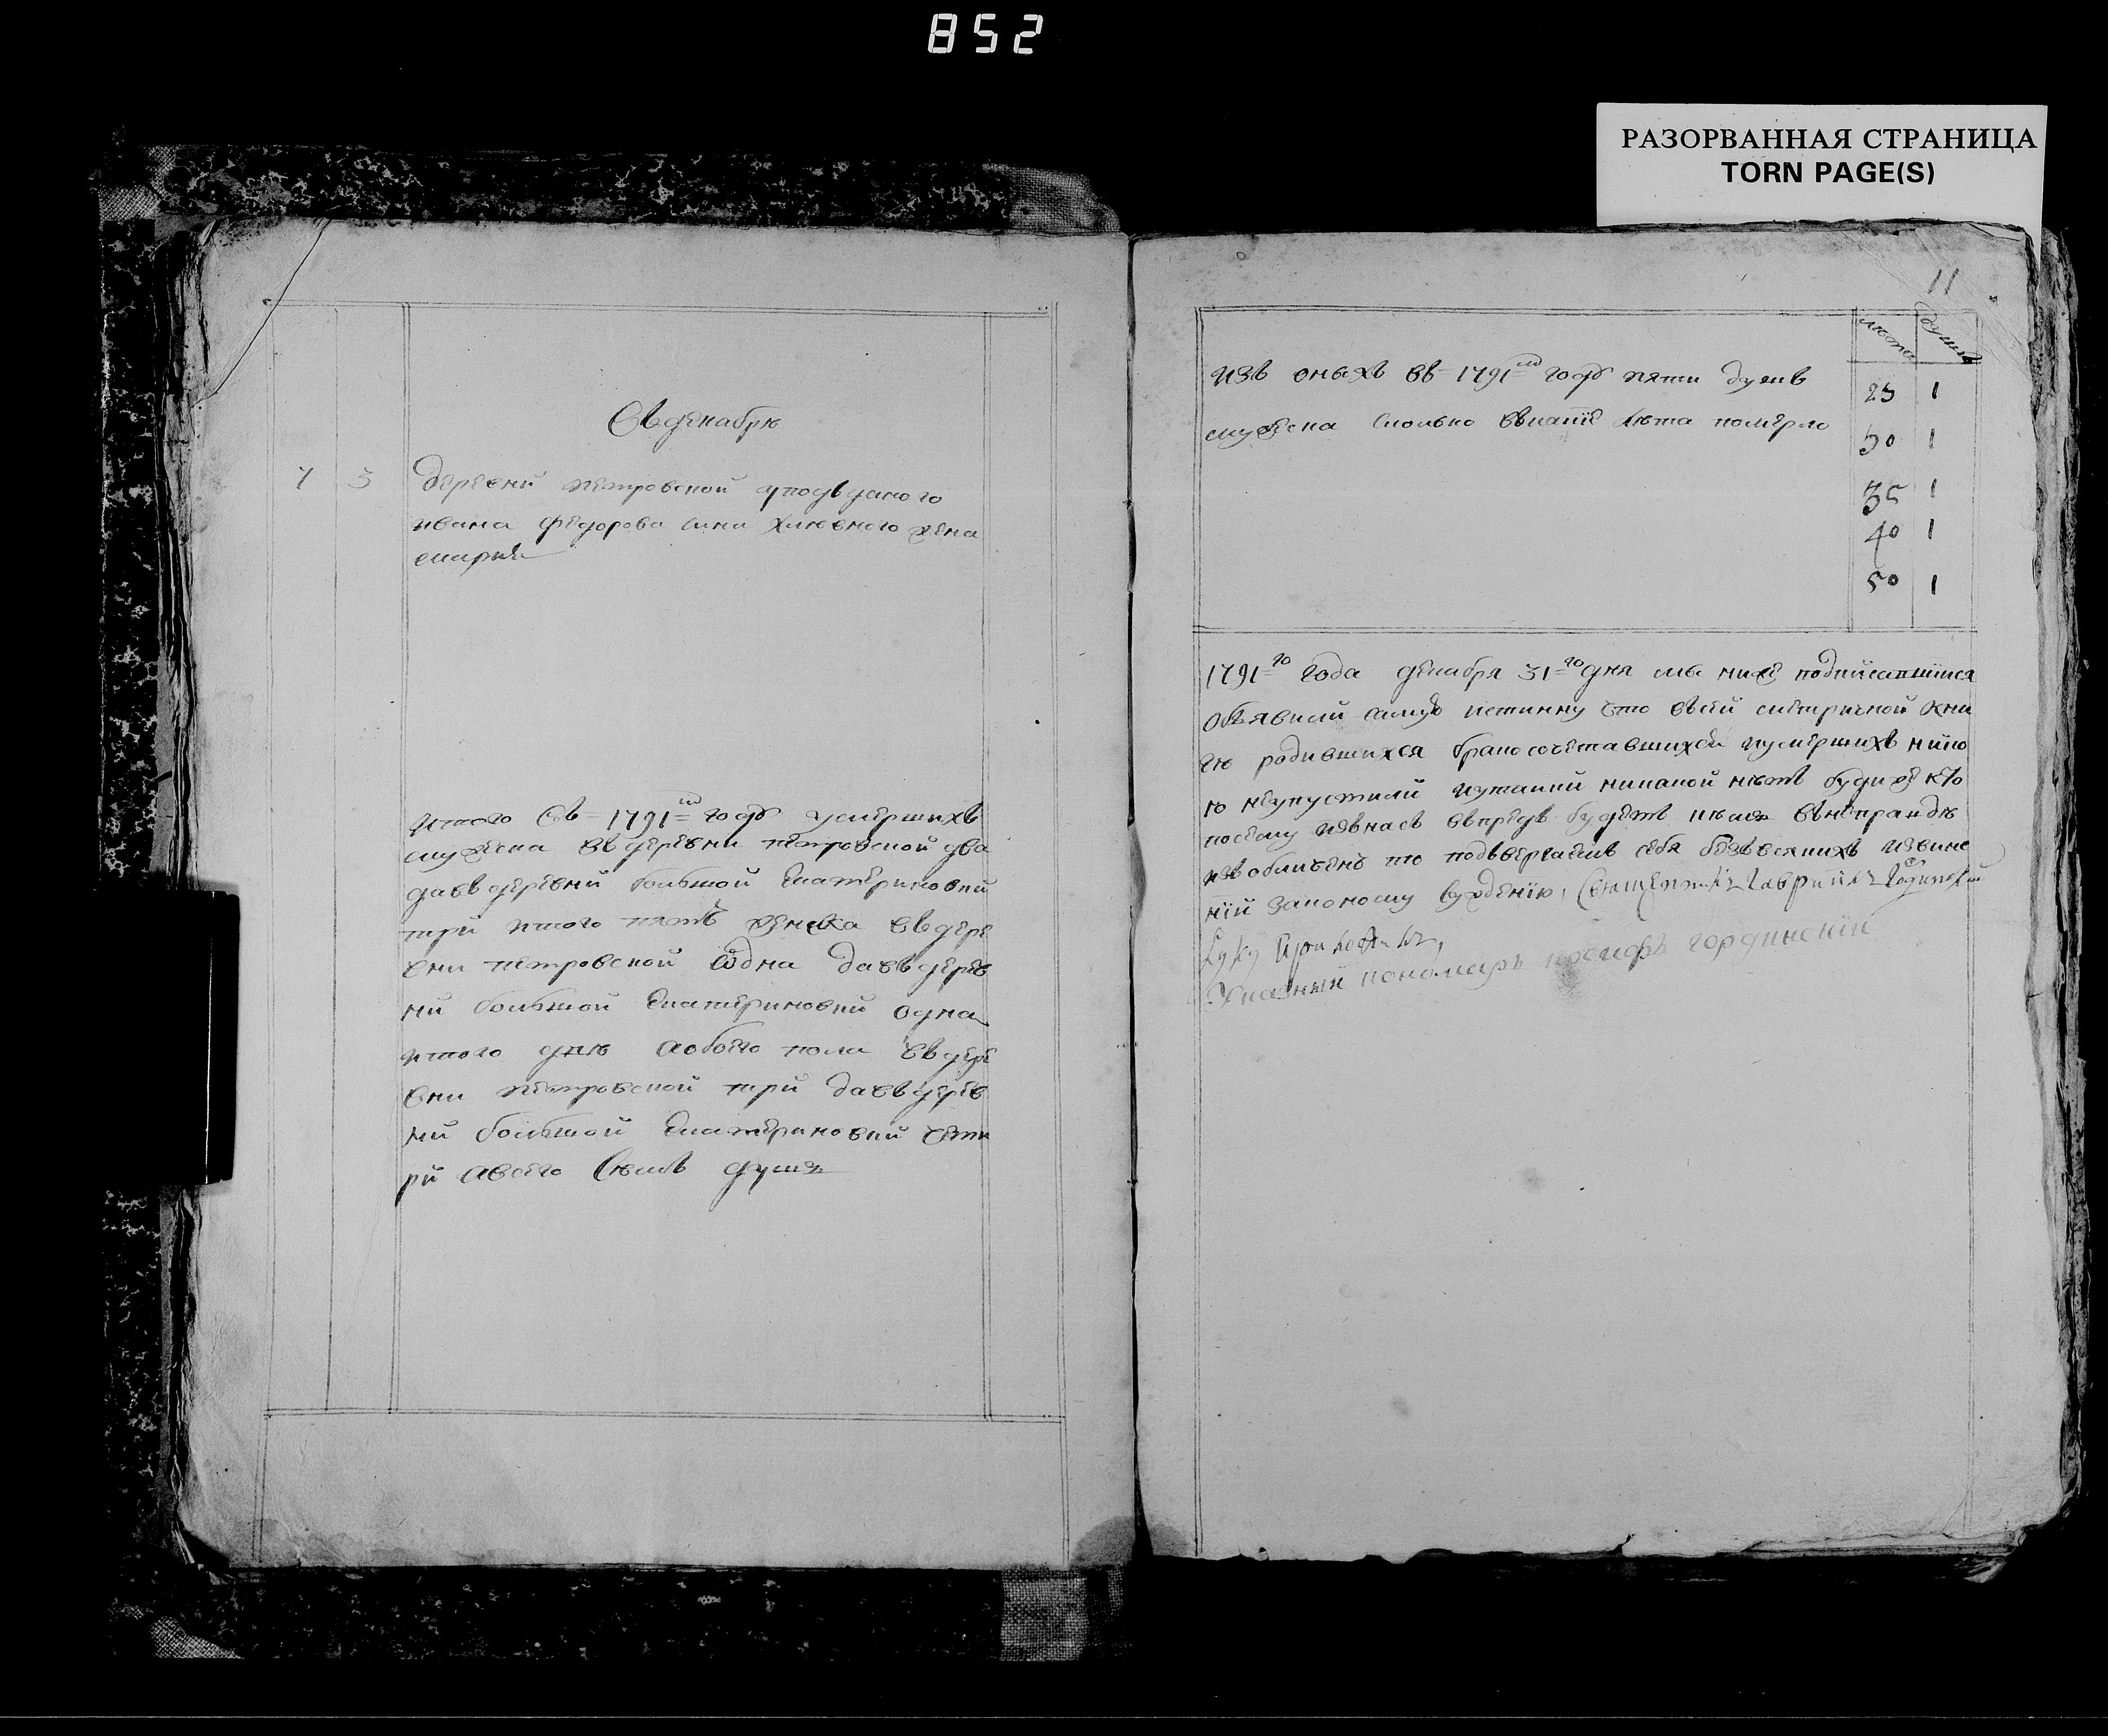 852
РАЗОРВАННАЯ СТРАНИЦА
TORN PAGE(S)
Въ декабрѣ
7 3 деревни петровской уподъданого
ивана федорова сина хлевного жена
марья
итого въ 1791=м году умершихъ
мужеска въ деревни петровской два
давъ деревни большой екатериновки
три итого пять женска въ дере
вни петровской одна давъ дерев
ни большой екатериновки одна
итого двѣ аобоего пола въ дере
вни петровской три давъ дерев
ни большой екатериновки четы
ри авсего семь душъ
11
лѣта души
изъ оныхъ въ 1791=м году пяти душъ
мужеска сколько въ какие лѣта померло
25 1
30 1
35 1
40 1
50 1
1791=го года декабря 31=го дня мы ниже подписавшиися
объявили самую истинну что въсей метричной кни
ги родившихся бракосочетавшихся иумершихъ нико
го неупустили иутайки никакой нѣтъ будиже кто
посему изънасъ въпредь будетъ въ неправде
изобличенъ то подъвергаемъ себя безъвсякихъ извине
ний законому суждению, Священникъ Гавриилъ
руку приложилъ,
Указный пономаръ иосифъ гординский